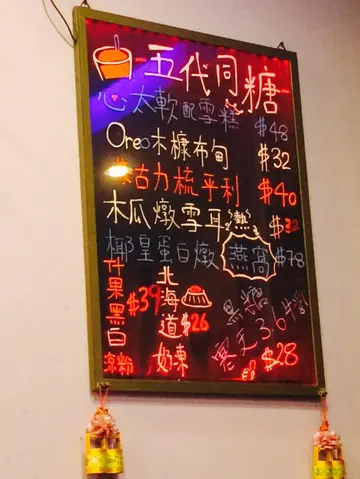 五代同糖
心太軟配雪糕 $48
Oreo木糠布甸 $32
朱古力梳乎利 $40
木瓜燉雪耳 熱 $32
椰皇蛋白燉燕窩 $78
什果黑白涼粉 $39
北海道奶凍 $26
黑糖
3.6牛
$28